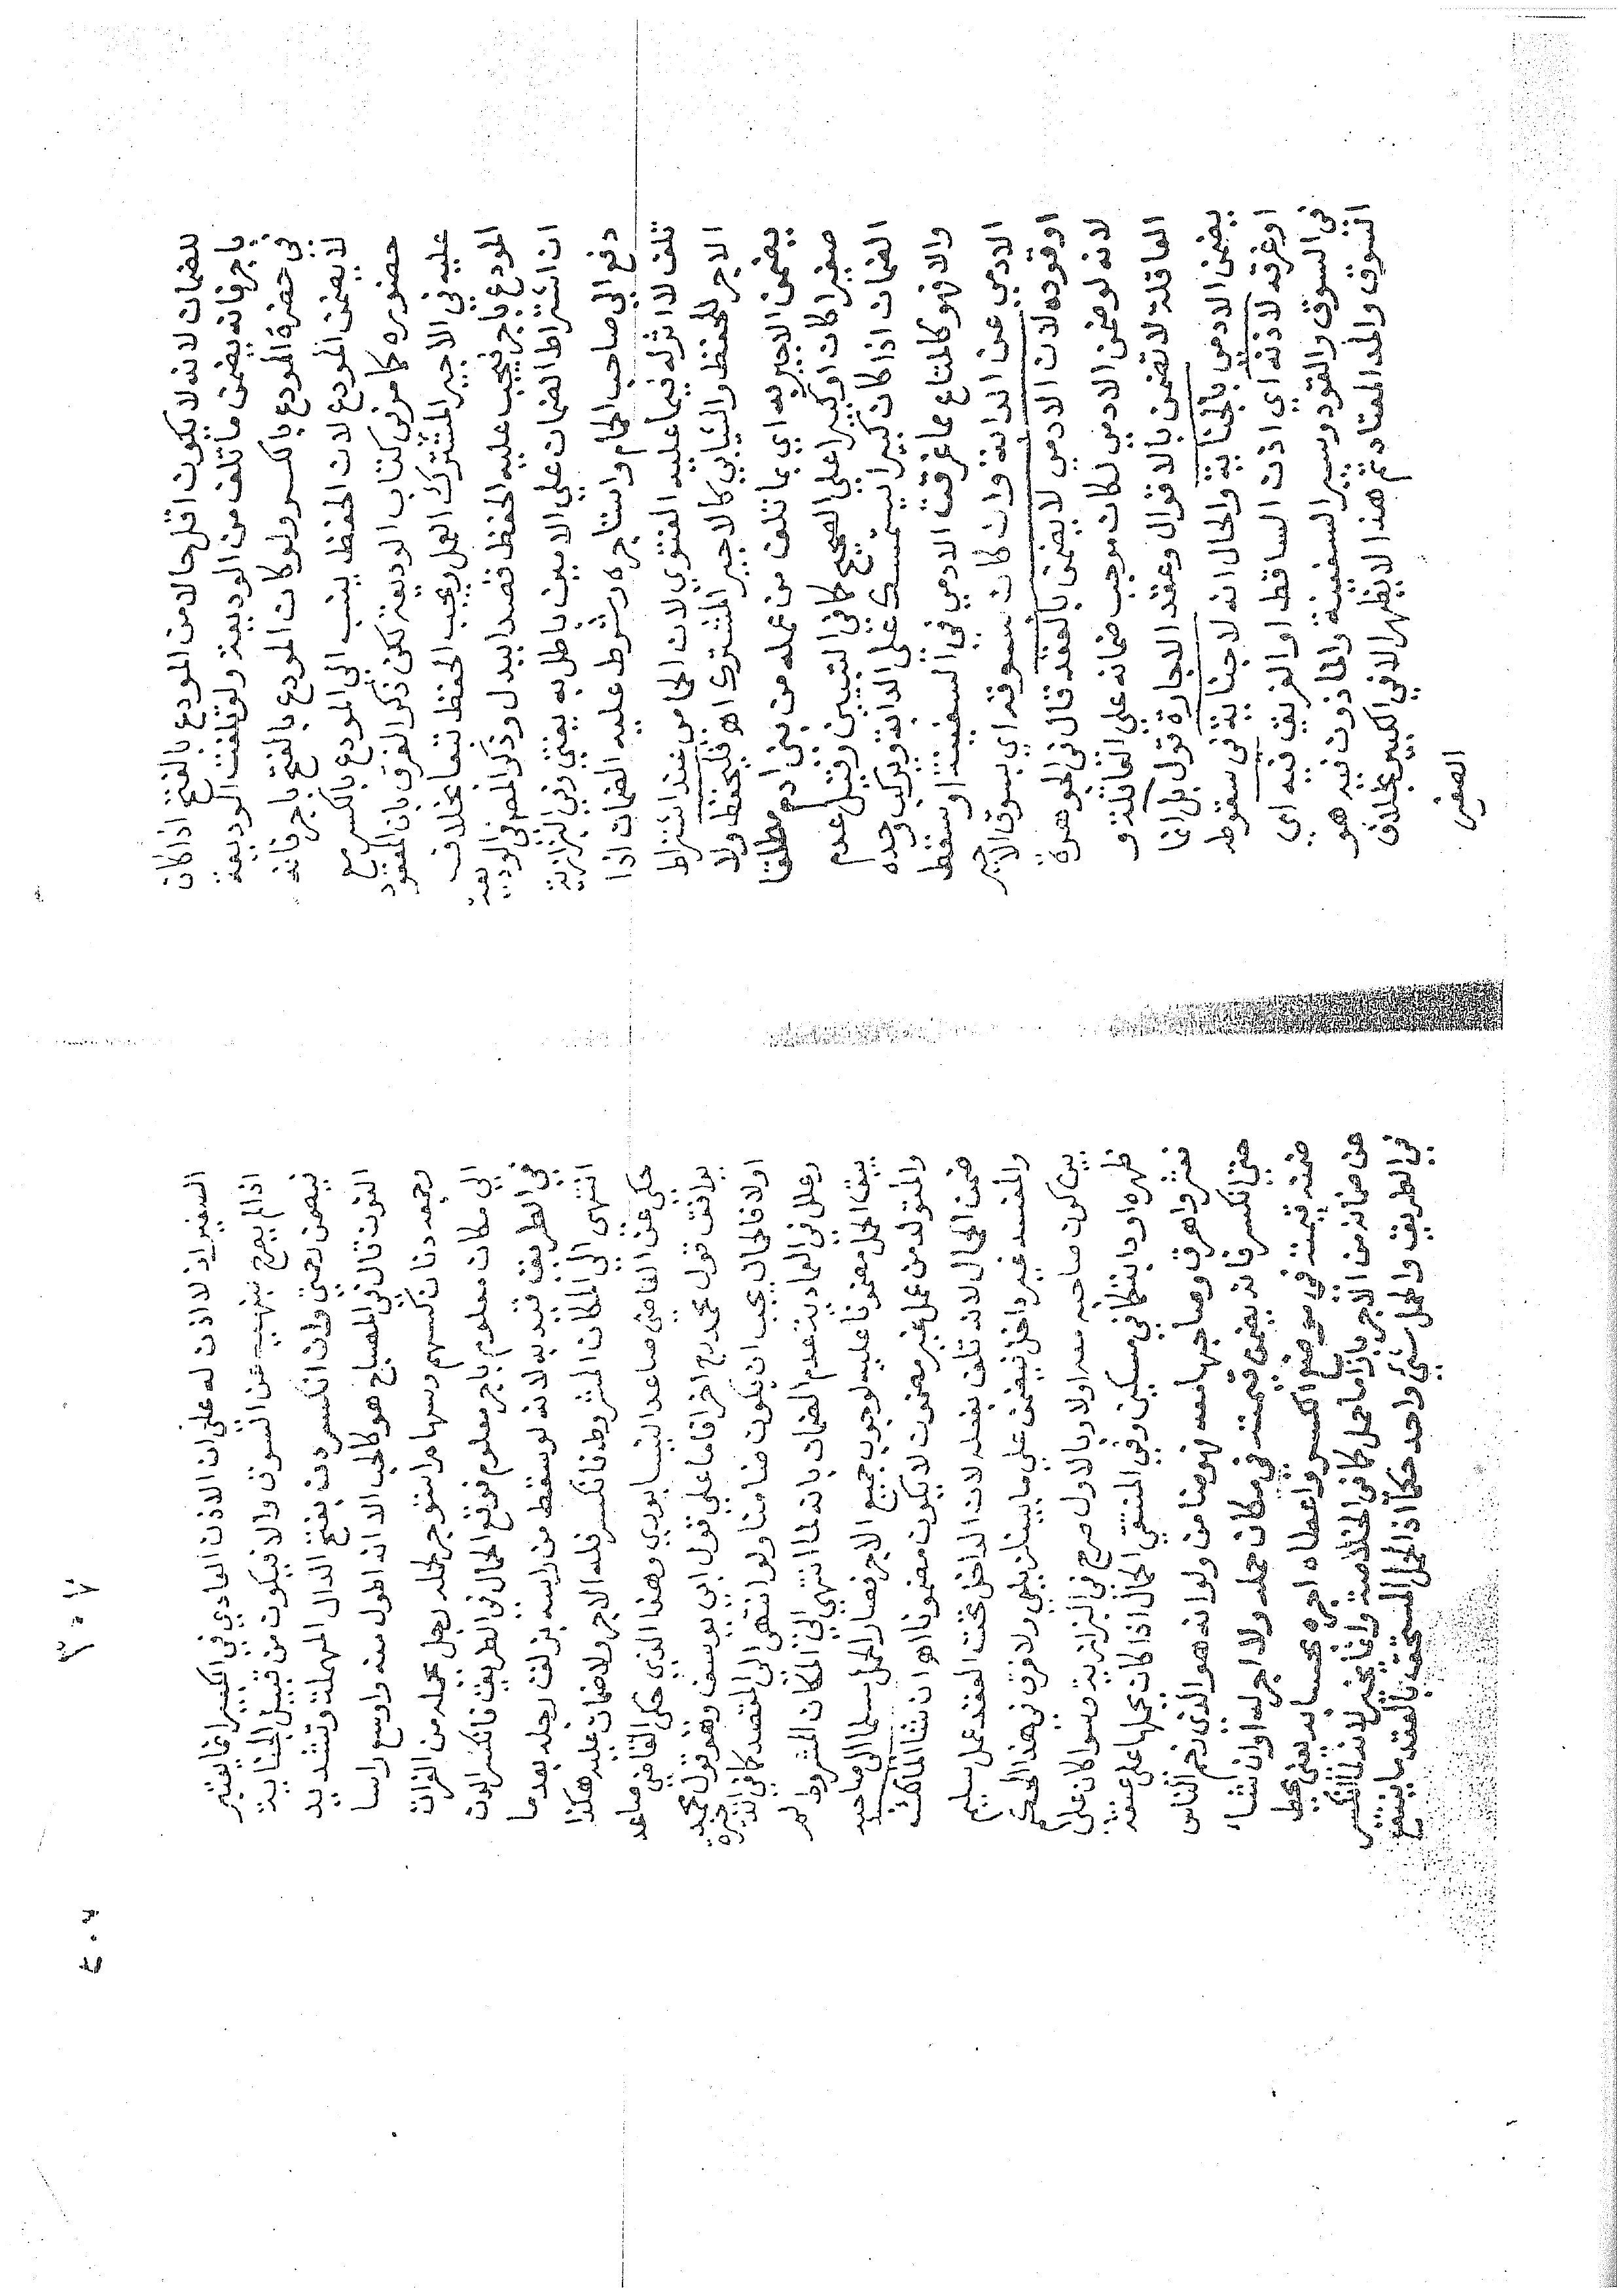 للضمان لانه لا يكون اقل حالا من المودع بالفتح اذا كان
باجر فانه يضمن ما تلف من الوديعة ولو تلفت الوديعة
في حضرة المودع بالكسر ولو كان المودع بالفتح باجر فانه
لا يضمن المودع لان الحفظ ينسب الى المودع بالكسر مع
حضوره كما مر في كتاب الوديعة لكن ذكر الفرق بان المعقود
عليه في الاجير المشترك العمل ويجب الحفظ تبعا بخلاف
المودع باجر فيجب عليه الحفظ قصدا ببدل وذكر المصر في الوديعة
ان اشتراط الضمان علي الامين باطل به يفتي وفي البزازية
دفع الي صاحب الحمام واستاجره وشرط عليه الضمان اذا
تلف لا اثر له فيما عليه الفتوي لان الحمامي عند اشتراط
الاجر للحفظ والثيابي كالاجير المشترك اه فليحفظ ولا
يضمن الاجير به اي بما تلف من عمله من بني ادم مطلقا
صغيرا كان او كبيرا علي الصحيح كما في التبيين وقيل عدم
الضمان اذا كان كبيرا يستمسك علي الدابة ويركب وحده
والا فهو كالمتاع مما غرقت الادمي في السفينة او سقط
الادمي عن الدابة وان كان بسوقه اي بسوق الاجير
او قوده لان الادمي لا يضمن بالعقد قال في الجوهرة
لانه لو ضمن الادمي لكان موجب ضمانه علي العاقلة و
العاقلة لا تضمن بالاقوال وعقد الاجارة قول بل انما
يضمن الادمي بالجناية والحال انه لا جناية في سقوطه
او غرقه لاذنه اي اذن الساقط او الغريق فيه اي
في السوق والقود وسير السفينة والماذون فيه هو
السوق والمد المعتاد ثم هذا لا يظهر الا في الكبير بخلاف
الصغير
٣٠٧
الصغير اذ لا اذن له علي ان الاذن العادي في الكبير انما يعتبر
اذا لم يصرح بنهيه عن السوق والا فيكون من قبيل الجناية
فيضمن رحمتي وان انكسر دن بفتح الدال المهملة وتشديد
النون قال في المصباح هو كالحب الا انه اطول منه واوسع راسا
وجمعه دنان كسهم وسهام استوجر لحمله رجل يحمله من الفرات
الي مكان معلوم باجر معلوم فوقع الحمال في الطريق فانكسر الدن
في الطريق قيد به لانه لو سقط من راسه بزلق رجله بعد ما
انتهى الي المكان المشروط فانكسر فله الاجر ولا ضمان عليه هكذا
حكي عن القاضي صاعد النيسابوري وهذا الذي حكى القاضي صاعد
يوافق قول محمد رح اخرا فاما علي قول ابي يوسف وهو قول محمد
اولا فالحال يجب ان يكون ضامنا ولو انتهى الي المقصد كما في الذخيرة
وعلل في العمادية عدم الضمان بانه لما انتهي الي المكان المشروط لم
يبق الحمل مضمونا عليه لوجوب جميع الاجر فصار الحمل مسلما الى صاحبه
والمتولد من عمل غير مضمون لا يكون مضمونا اه ان شا المالك
ضمن الحمال لانه تلف بفعله لان الداخل تحت العقد عمل سليم
والمفسد غير داخل فيضمن علي ما بينا زيلعي ولا فرق في هذا الحكم
بين كون صاحبه معه اولا وبالاول صرح في البزازية وسوا كان على
ظهره او دابته كما في مسكين وفي المنتقي الحمال اذا كان يحملها على عنقه
فعثر واهرق وصاحبها معه فهو ضامن ولو انه هو الذي زحم الناس
حتى انكسر فانه يضمن قيمته في مكان حمله ولا اجر له او ان شاء
ضمنه قيمته في موضع الكسر واعطاه اجره بحسابه يعني يحط
من ضمانه من الاجر بازا ما حمل كما في الخلاصة وانما يخير لانه لما انكسر
في الطريق والحمل شيء واحد حكما اذ الحمل المستحق بالعقد ما ينتفع
٤٠٨